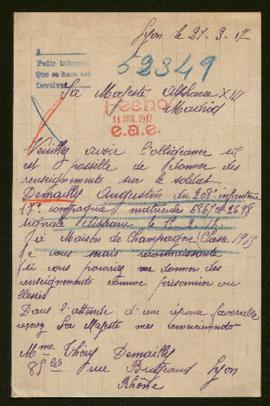 Lyon le 21. 3. 17
Pedir informes
Que se hace así
Devolver
52349
Sa Majesté Alphonse XIII
Madrid
Hecho
11 ABR. 1917
e.a.e.
Veuillez avoir l'obligeance s'il
est possible de donner des
renseignements sur le soldat
Demailly Augustin du 208e infanterie
17e compagnie matricule
signalé disparu le
à Maison de Champagne Classe 1913
je vous serais reconnaissante
si vous pouvez me donner des
renseignements comme prisonnier ou
blessé
Dans l'attente d'une réponse favorable
recevez Sa Majesté mes remerciements
Mme Théry Demailly
85 bis rue Lyon
Rhône